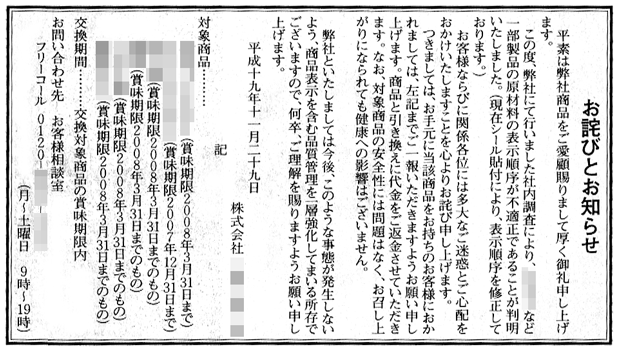 お詫びとお知らせ
平素は弊社商品をご愛顧賜りまして厚く御礼申し上げ
ます。
この度、弊社にて行いました社内調査により、 など
一部製品の原材料の表示順序が不適正であることが判明
いたしました。(現在シール貼付により、表示順序を修正して
おります。)
お客様ならびに関係各位には多大なご迷惑とご心配を
おかけいたしますことを心よりお詫び申し上げます。
つきましては、お手元に当該商品をお持ちのお客様におか
れましては、左記までご一報いただきますようお願い申し
上げます。商品と引き換えに代金をご返金させていただき
ます。なお、対象商品の安全性には問題はなく、お召し上
がりになられても健康への影響はございません。
弊社といたしましては今後、このような事態が発生しない
よう、商品表示を含む品質管理を一層強化してまいる所存で
ございますので、何卒、ご理解を賜りますようお願い申し
上げます。
平成十九年十一月二十九日
株式会社
記
対象商品………
(賞味期限2008年3月31日まで)
(賞味期限2007年12月31日まで)
(賞味期限2008年3月31日までのもの)
(賞味期限2008年3月31日までのもの)
(賞味期限2008年3月31日までのもの)
交換期間………交換対象商品の賞味期限内
お問い合わせ先 お客様相談室
フリーコール 0120- -
(月~土曜日 9時~19時)